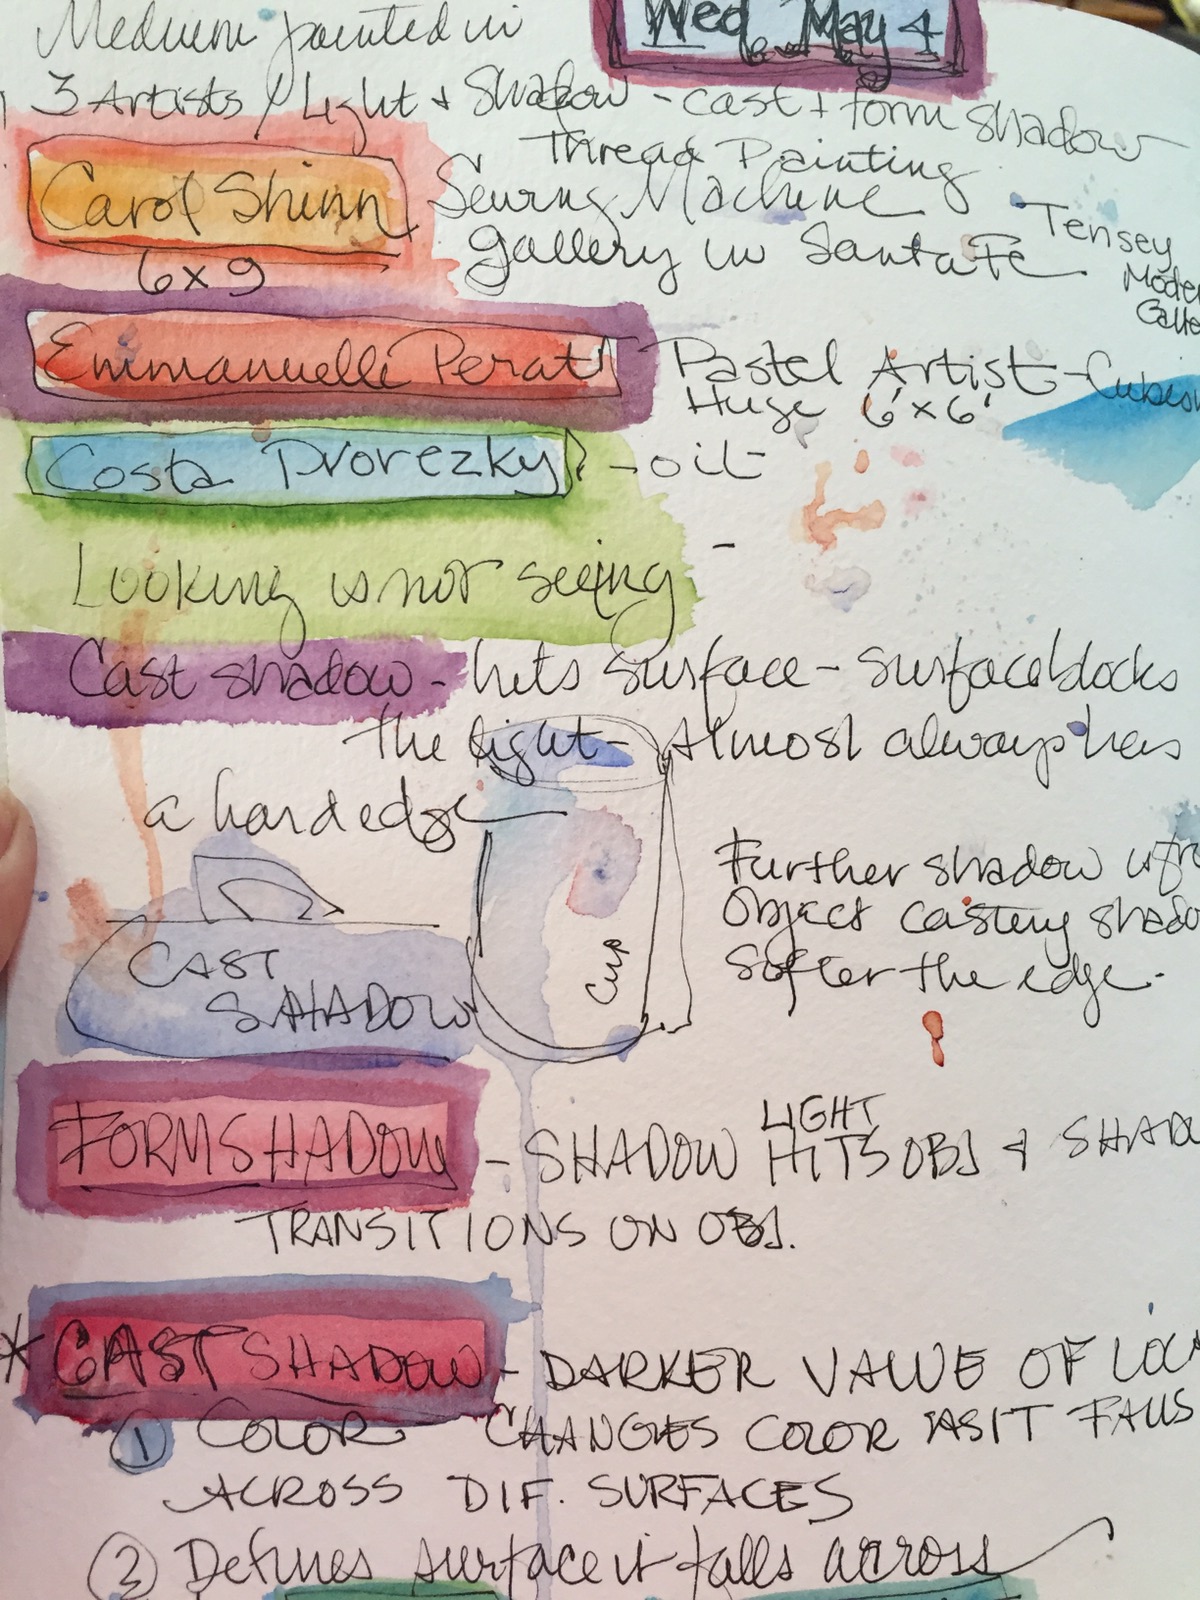 Wed. May 4
Medium painted in
3 Artists / Light + Shadow - cast + form shadow
Thread Painting
Carol Shinn Sewing Machine
6x9 gallery in Santa Fe
Tensey
Moder
Galle
Emmanuelle Perat Pastel Artist - Cubism
Huge 6'x6'
Costa Dvorezky - oil
Looking is not seeing -
Cast shadow - hits surface - surface blocks
the light - Almost always has
a hard edge
Further shadow is fr
Object casting shado
Softer the edge.
CAST
SHADOW
Cup
LIGHT
FORM SHADOW - SHADOW HITS OBJ + SHADO
TRANSITIONS ON OBJ.
* CAST SHADOW - DARKER VALUE OF LOCA
① COLOR CHANGES COLOR AS IT FALLS
ACROSS DIF. SURFACES
② Defines surface it falls across